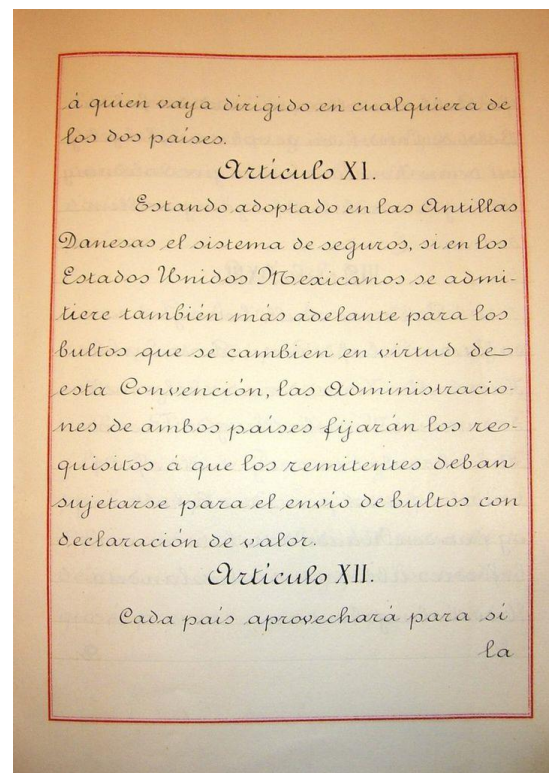 á quien vaya dirigido en cualquiera de
los dos países.
Artículo XI.
Estando adoptado en las Antillas
Danesas el sistema de seguros, si en los
Estados Unidos Mexicanos se admi-
tiere también más adelante para los
bultos que se cambien en virtud de
esta Convención, las Administracio-
nes de ambos países fijarán los re-
quisitos á que los remitentes deban
sujetarse para el envío de bultos con
declaración de valor.
Artículo XII.
Cada país aprovechará para sí
la